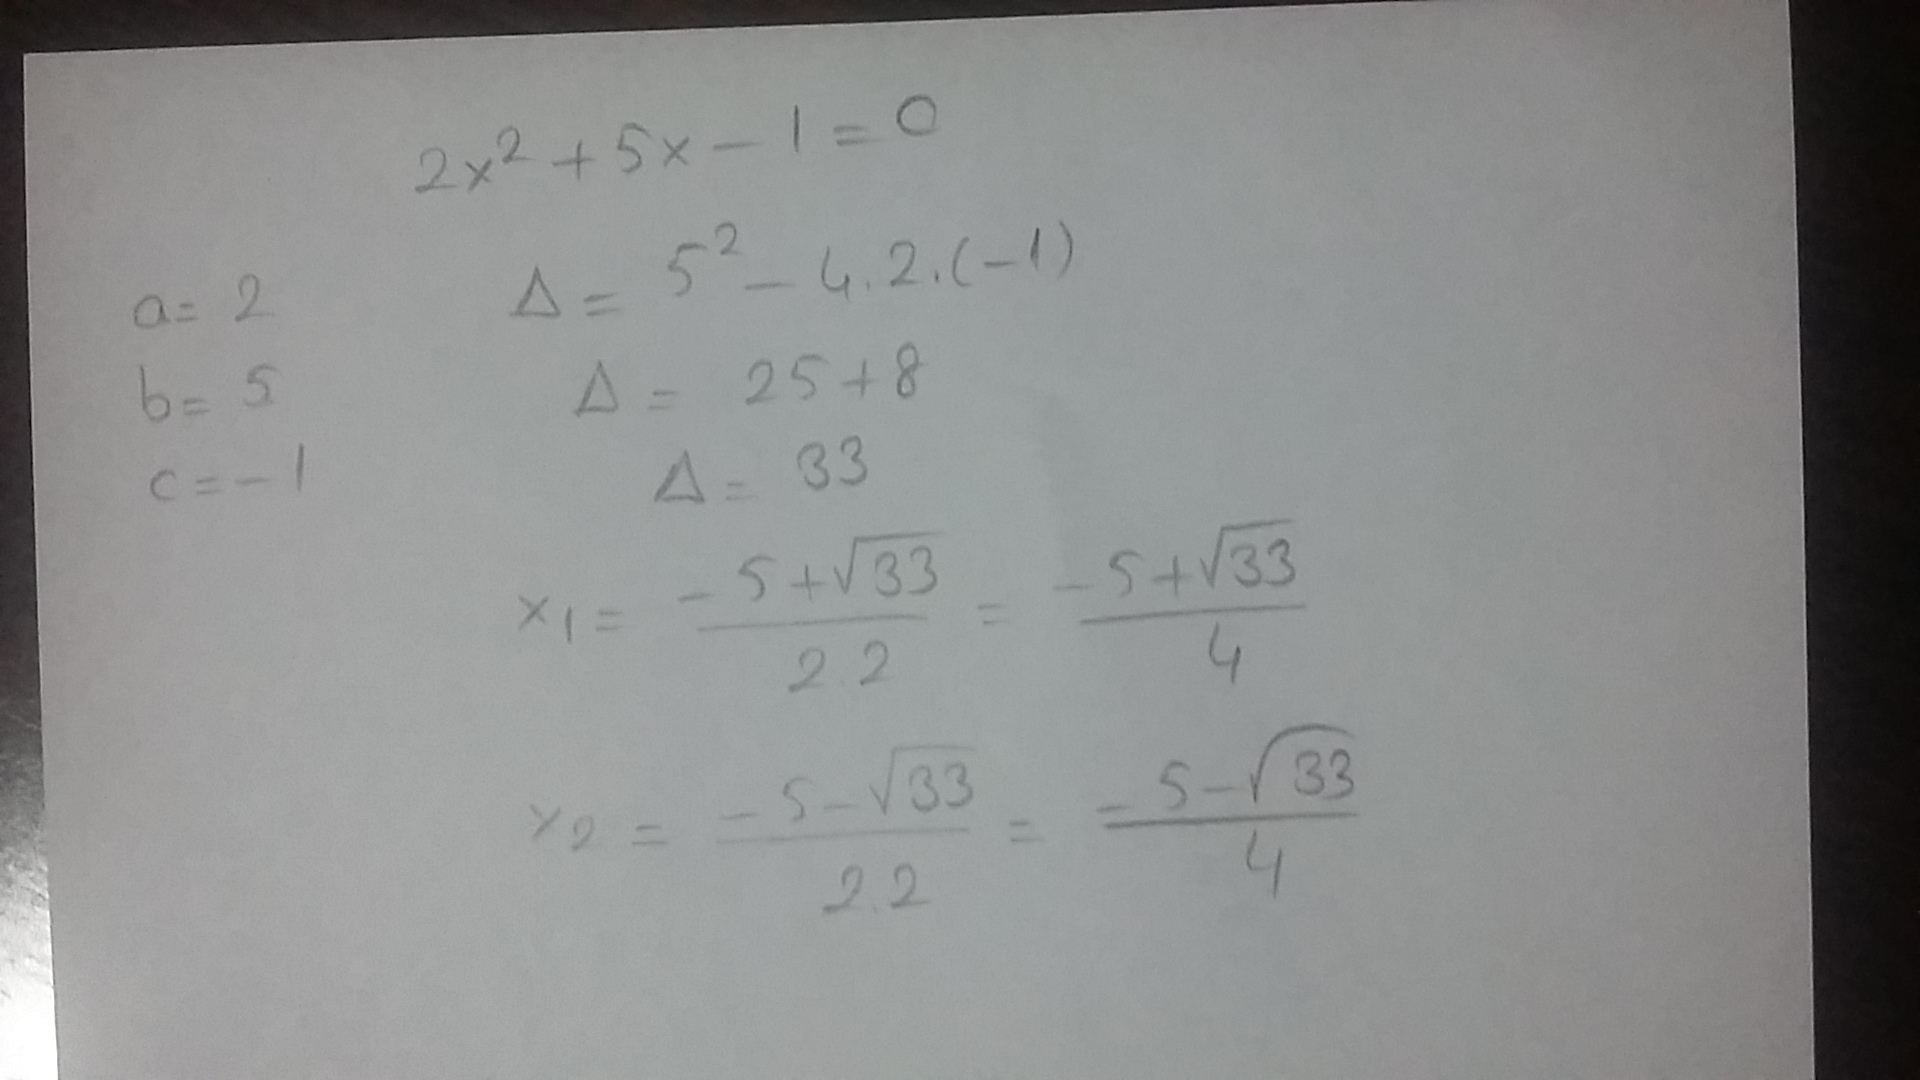 2x² + 5x - 1 = 0
a = 2
b = 5
c = -1
Δ = 5² - 4.2.(-1)
Δ = 25 + 8
Δ = 33
x₁ = (-5+√33)/(2.2) = (-5+√33)/4
x₂ = (-5-√33)/(2.2) = (-5-√33)/4